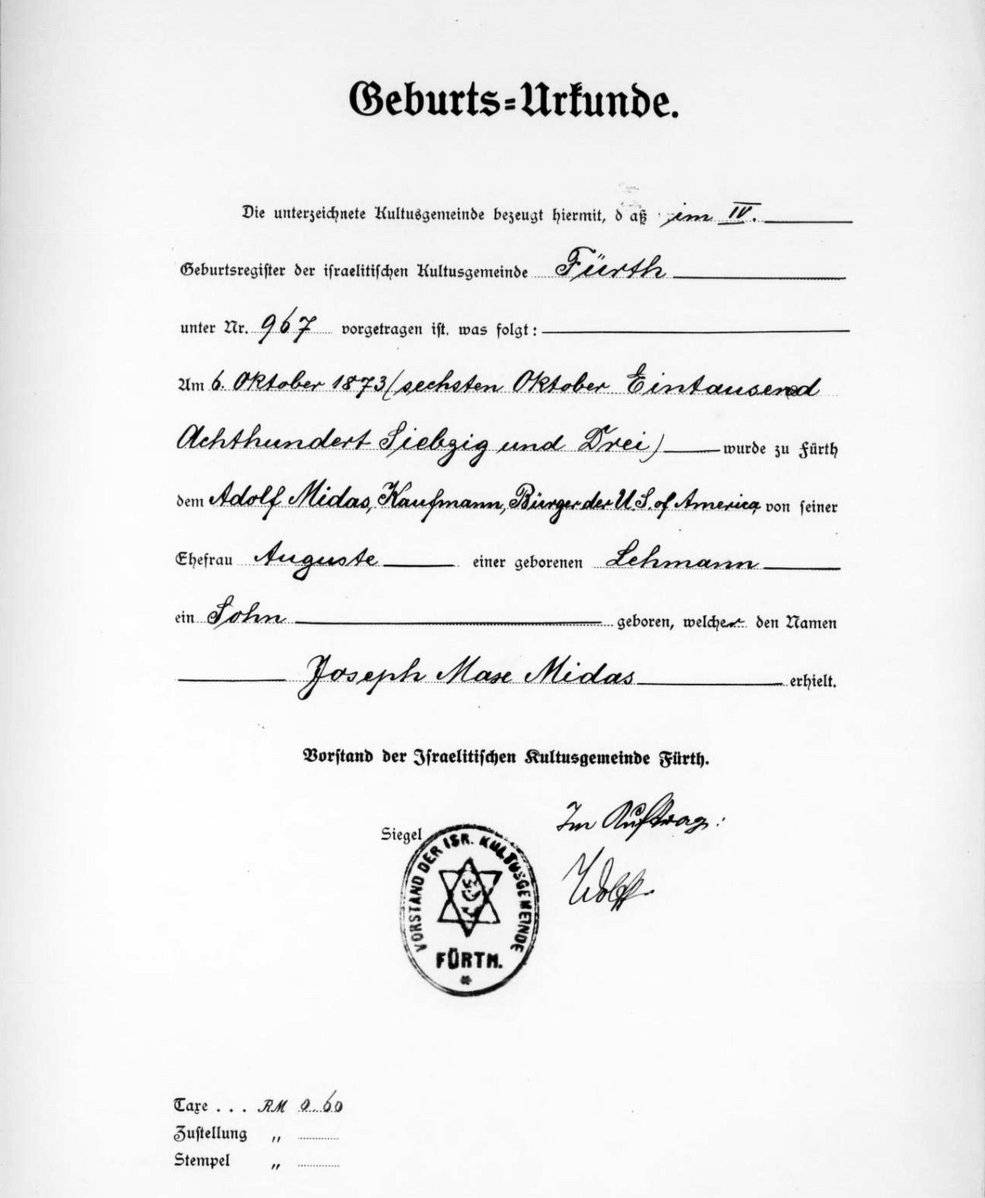 Geburts=Urkunde.
Die unterzeichnete Kultusgemeinde bezeugt hiermit, daß im IV.
Geburtsregister der israelitischen Kultusgemeinde Fürth
unter Nr. 967 vorgetragen ist, was folgt:
Am 6. Oktober 1873 (sechsten Oktober Eintausend
Achthundert Siebzig und Drei) wurde zu Fürth
dem Adolf Midas, Kaufmann, Bürger der U.S. of America, von seiner
Ehefrau Auguste einer geborenen Lehmann
ein Sohn geboren, welcher den Namen
Joseph Max Midas erhielt.
Vorstand der Israelitischen Kultusgemeinde Fürth.
Im Auftrag:
Siegel
VORSTAND DER ISR. KULTUSGEMEINDE
FÜRTH.
Wolff.
Taxe . . . RM 0.60
Zustellung „
Stempel „